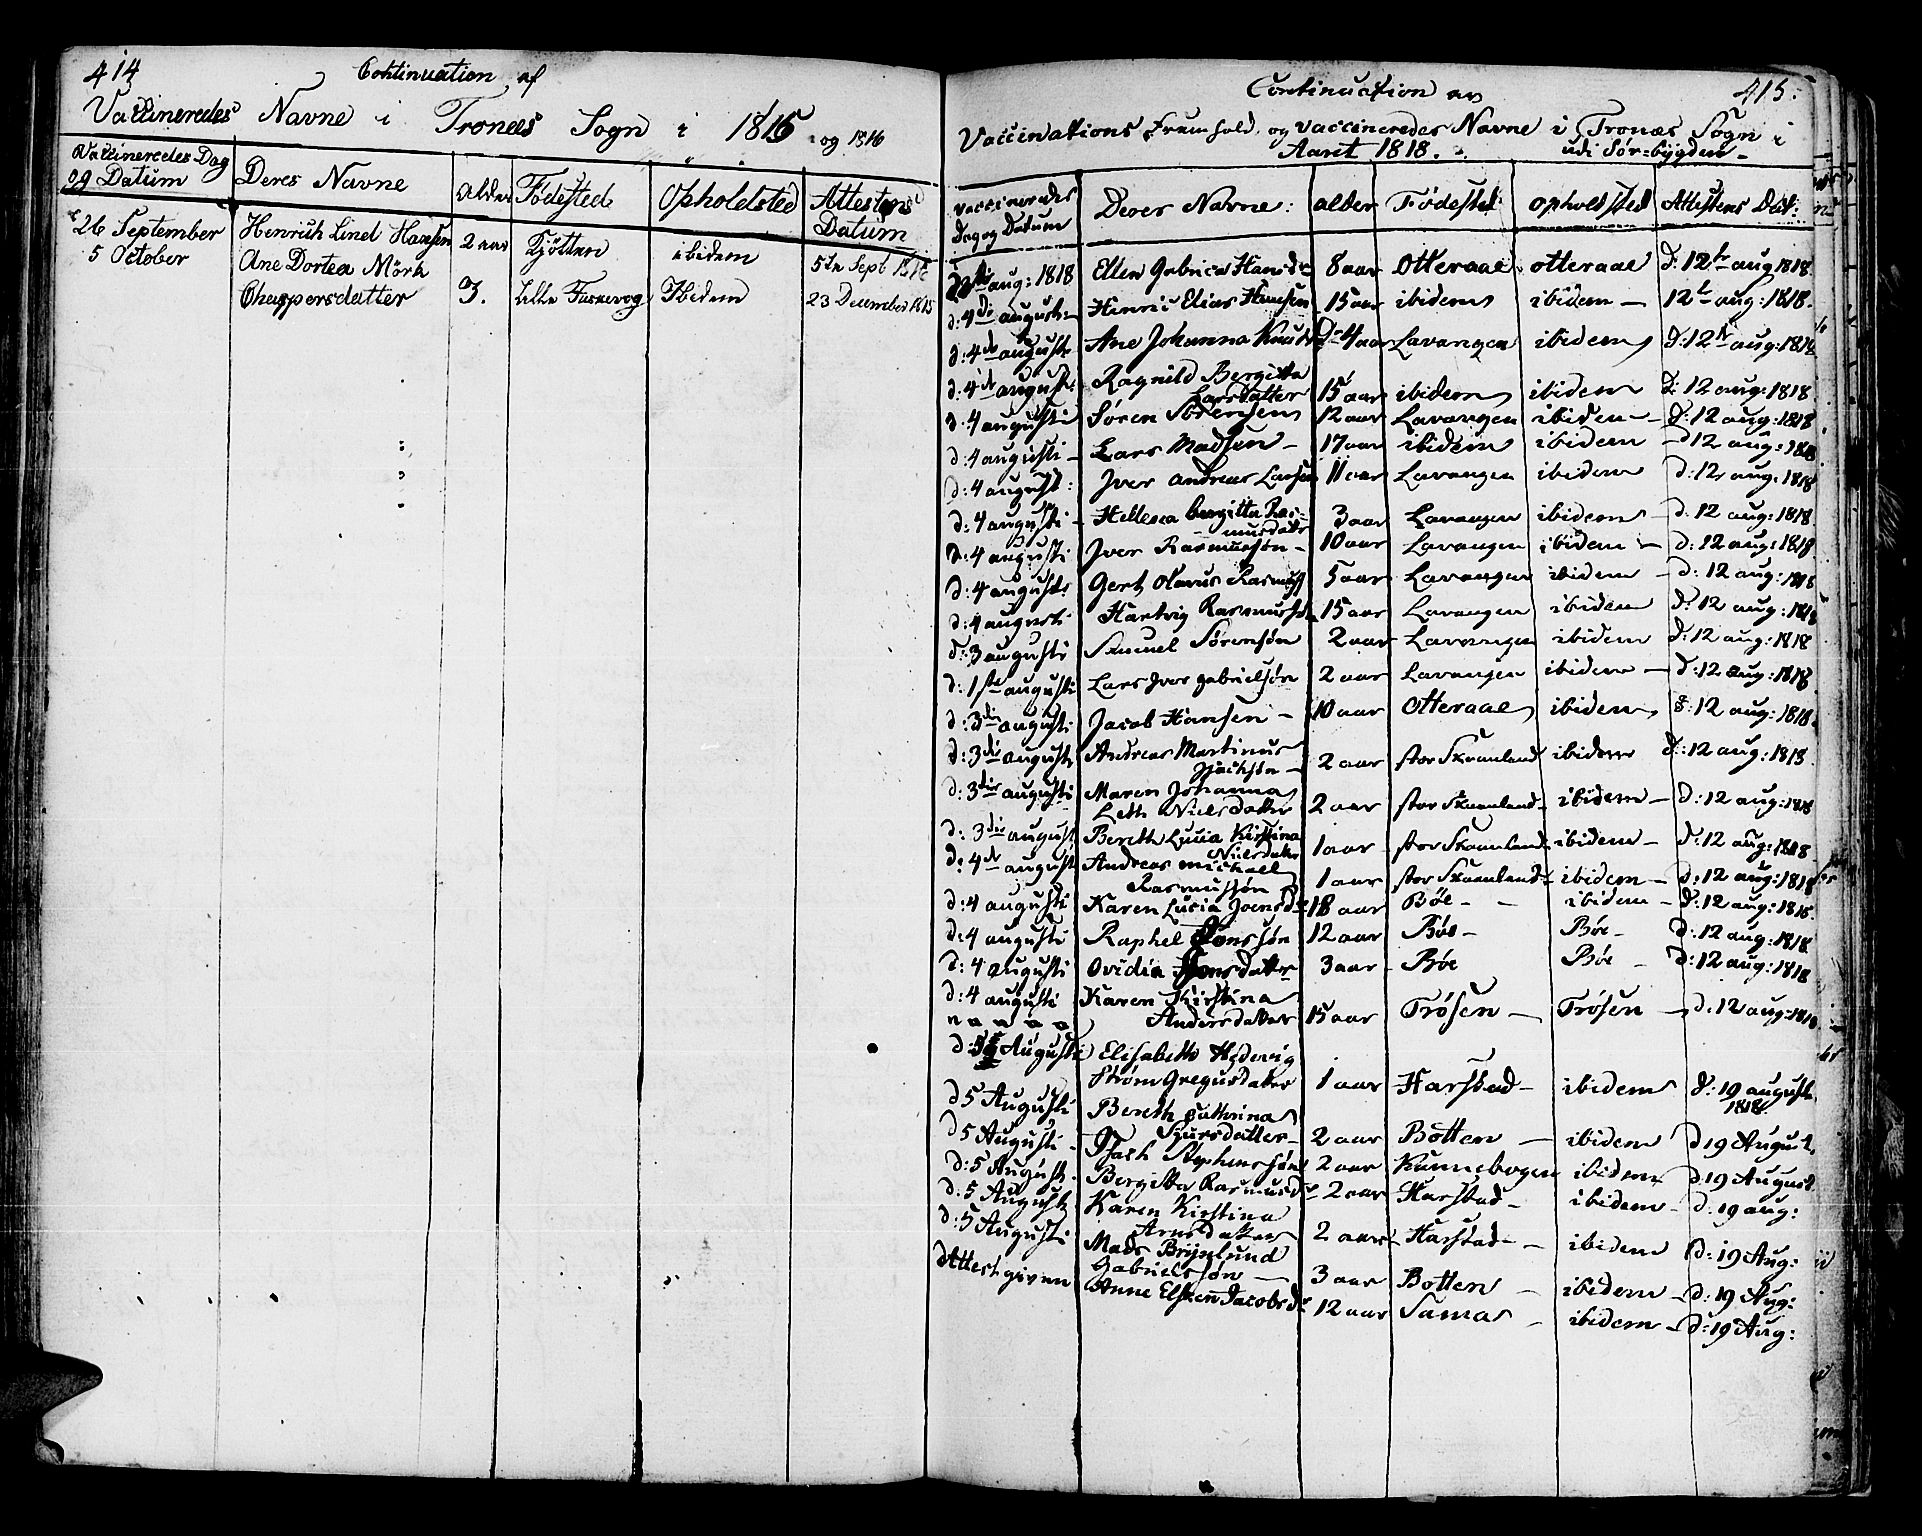 414
Continuation af
Vaccineredes Navne i Tronæs Sogn i 1815 og 1816
Vaccineredes Dag og Datum | Deres Navne | Alder | Födested | Opholdsted | Attestens Datum
26 September | Henrich Lind Hansen | 2 aar | Tjötten | ibidem | 5te Sept 1816
5 October | Ane Dortea Mörk
Chaspersdatter | 3. | Lille | Ibidem | 23 December 1815
415
Continuation av
Vaccinations Fremhold og vaccineredes Navne i Tronæs Sogn i
Aaret 1818. udi Sør=bygden
vaccineredes Dag og Datum | Deres Navne: | alder | Fødested | opholdsted | Attestens Dat:
aug: 1818 | Ellen Gabriea Hansdr | 8 aar | Otteraae | otteraae | d: 12te aug 1818.
d: 4de augusti | Henric Elias Hansen | 15 aar | ibidem | ibidem — | 12te aug: 1818.
d: 4de augusti | Ane Johanna Knuds Dr | 4 aar | Lavangen | ibidem | d: 12te aug: 1818
d: 4de augusti: | Ragnild Bergitta
Larsdatter | 15 aar | ibidem | ibidem | d: 12 aug: 1818
d: 4 augusti | Søren Sørensen | 12 aar | Lavangen | ibidem — | d: 12 aug: 1818
d: 4 augusti — | Lars Madsen — | 17 aar | ibidem | ibidem | d 12 aug: 1818
d: 4 augusti: | Iver andreas Larsen | 11 aar | Lavangen | ibidem | d: 12 aug: 1818
d: 4 augusti — | Hellesea bergitta Ras=
musdater | 3 aar | Lavangen | ibidem | d. 12 aug: 1818
d: 4 augusti | Iver Rasmussøn — | 10 aar | Lavangen | ibidem — | d: 12 aug: 1818
d: 4 augusti | Gert Olavus Rasmuss | 5 aar | Lavangen | ibidem — | d: 12 aug: 1818
d: 4 augusti | Hartvig Rasmussøn | 15 aar | Lavangen | ibidem | d: 12 aug: 1818
d: 3 augusti | Samuel Sørensøn | 2 aar | Lavangen | ibidem | d: 12 aug: 1818
d: 1ste augusti | Lars Iver gabrielsøn | 2 aar | Lavangen | ibidem — | d: 12 aug: 1818
d: 3die augusti | Jacob Hansen — | 10 aar | Otteraae | ibidem | d: 12 aug: 1818.
d: 3die augusti | Andreas Martinus
Isachsøn — | 2 aar | stor Skaanland | ibidem | d: 12 aug: 1818.
d: 3die augusti | Maren Johanna
Leth Nielsdatter | 2 aar | stor Skaanland — | ibidem — | d: 12 aug: 1818
d: 3die augusti | Bereth Lucia Kirstina
Nielsdater | 1 aar | stor Skaanland | ibidem — | d: 12 aug: 1818
d: 4de augusti | Andreas michael
Rasmussøn | 1 aar | stor Skaanland | ibidem — | d: 12 aug: 1818
d: 4 augusti | Karen Lucia Joensdr | 18 aar | Bøe — | ibidem — | d: 12 aug: 1818.
d: 4 augusti | Raphel Jonssøn | 12 aar | Bøe — | Bøe — | d: 12 aug: 1818
d: 4 augusti | Ovidia Jonsdatter | 3 aar | Bøe | Bøe — | d: 12 aug: 1818
d: 4 augusti | Karen Kirstina
Andersdater | 15 aar | Trøsen — | Trøsen — | d: 12 aug: 1818
d: 5 Augusti | Elisabeth Hedevig
Strøm Gregusdater | 1 aar | Harstad — | ibidem | d: 19 augusti
1818
d 5 Augusti | Bereth Cathrina
Siursdatter — | 2 aar | Botten — | ibidem | d 19 August.
d 5 Augusti — | Isach Stephenssøn | 2 aar | Kannebogen | ibidem | d: 19 August
d: 5 Augusti. | Bergitta Rasmusdr | 2 aar | Harstad — | ibidem — | d. 19 aug:
d: 5 Augusti | Karen Kirstina
Arnsdater | 2 aar | Harstad — | ibidem | d: 19 Aug:
d: 5 Augusti | Mads Brynlund
Gabrielssøn — | 3 aar | Botten — | ibidem — | d: 19 Aug:
dAttest given | Anne Elsken Jacobsdr | 12 aar | Samas — | ibidem — | d: 19 Aug: